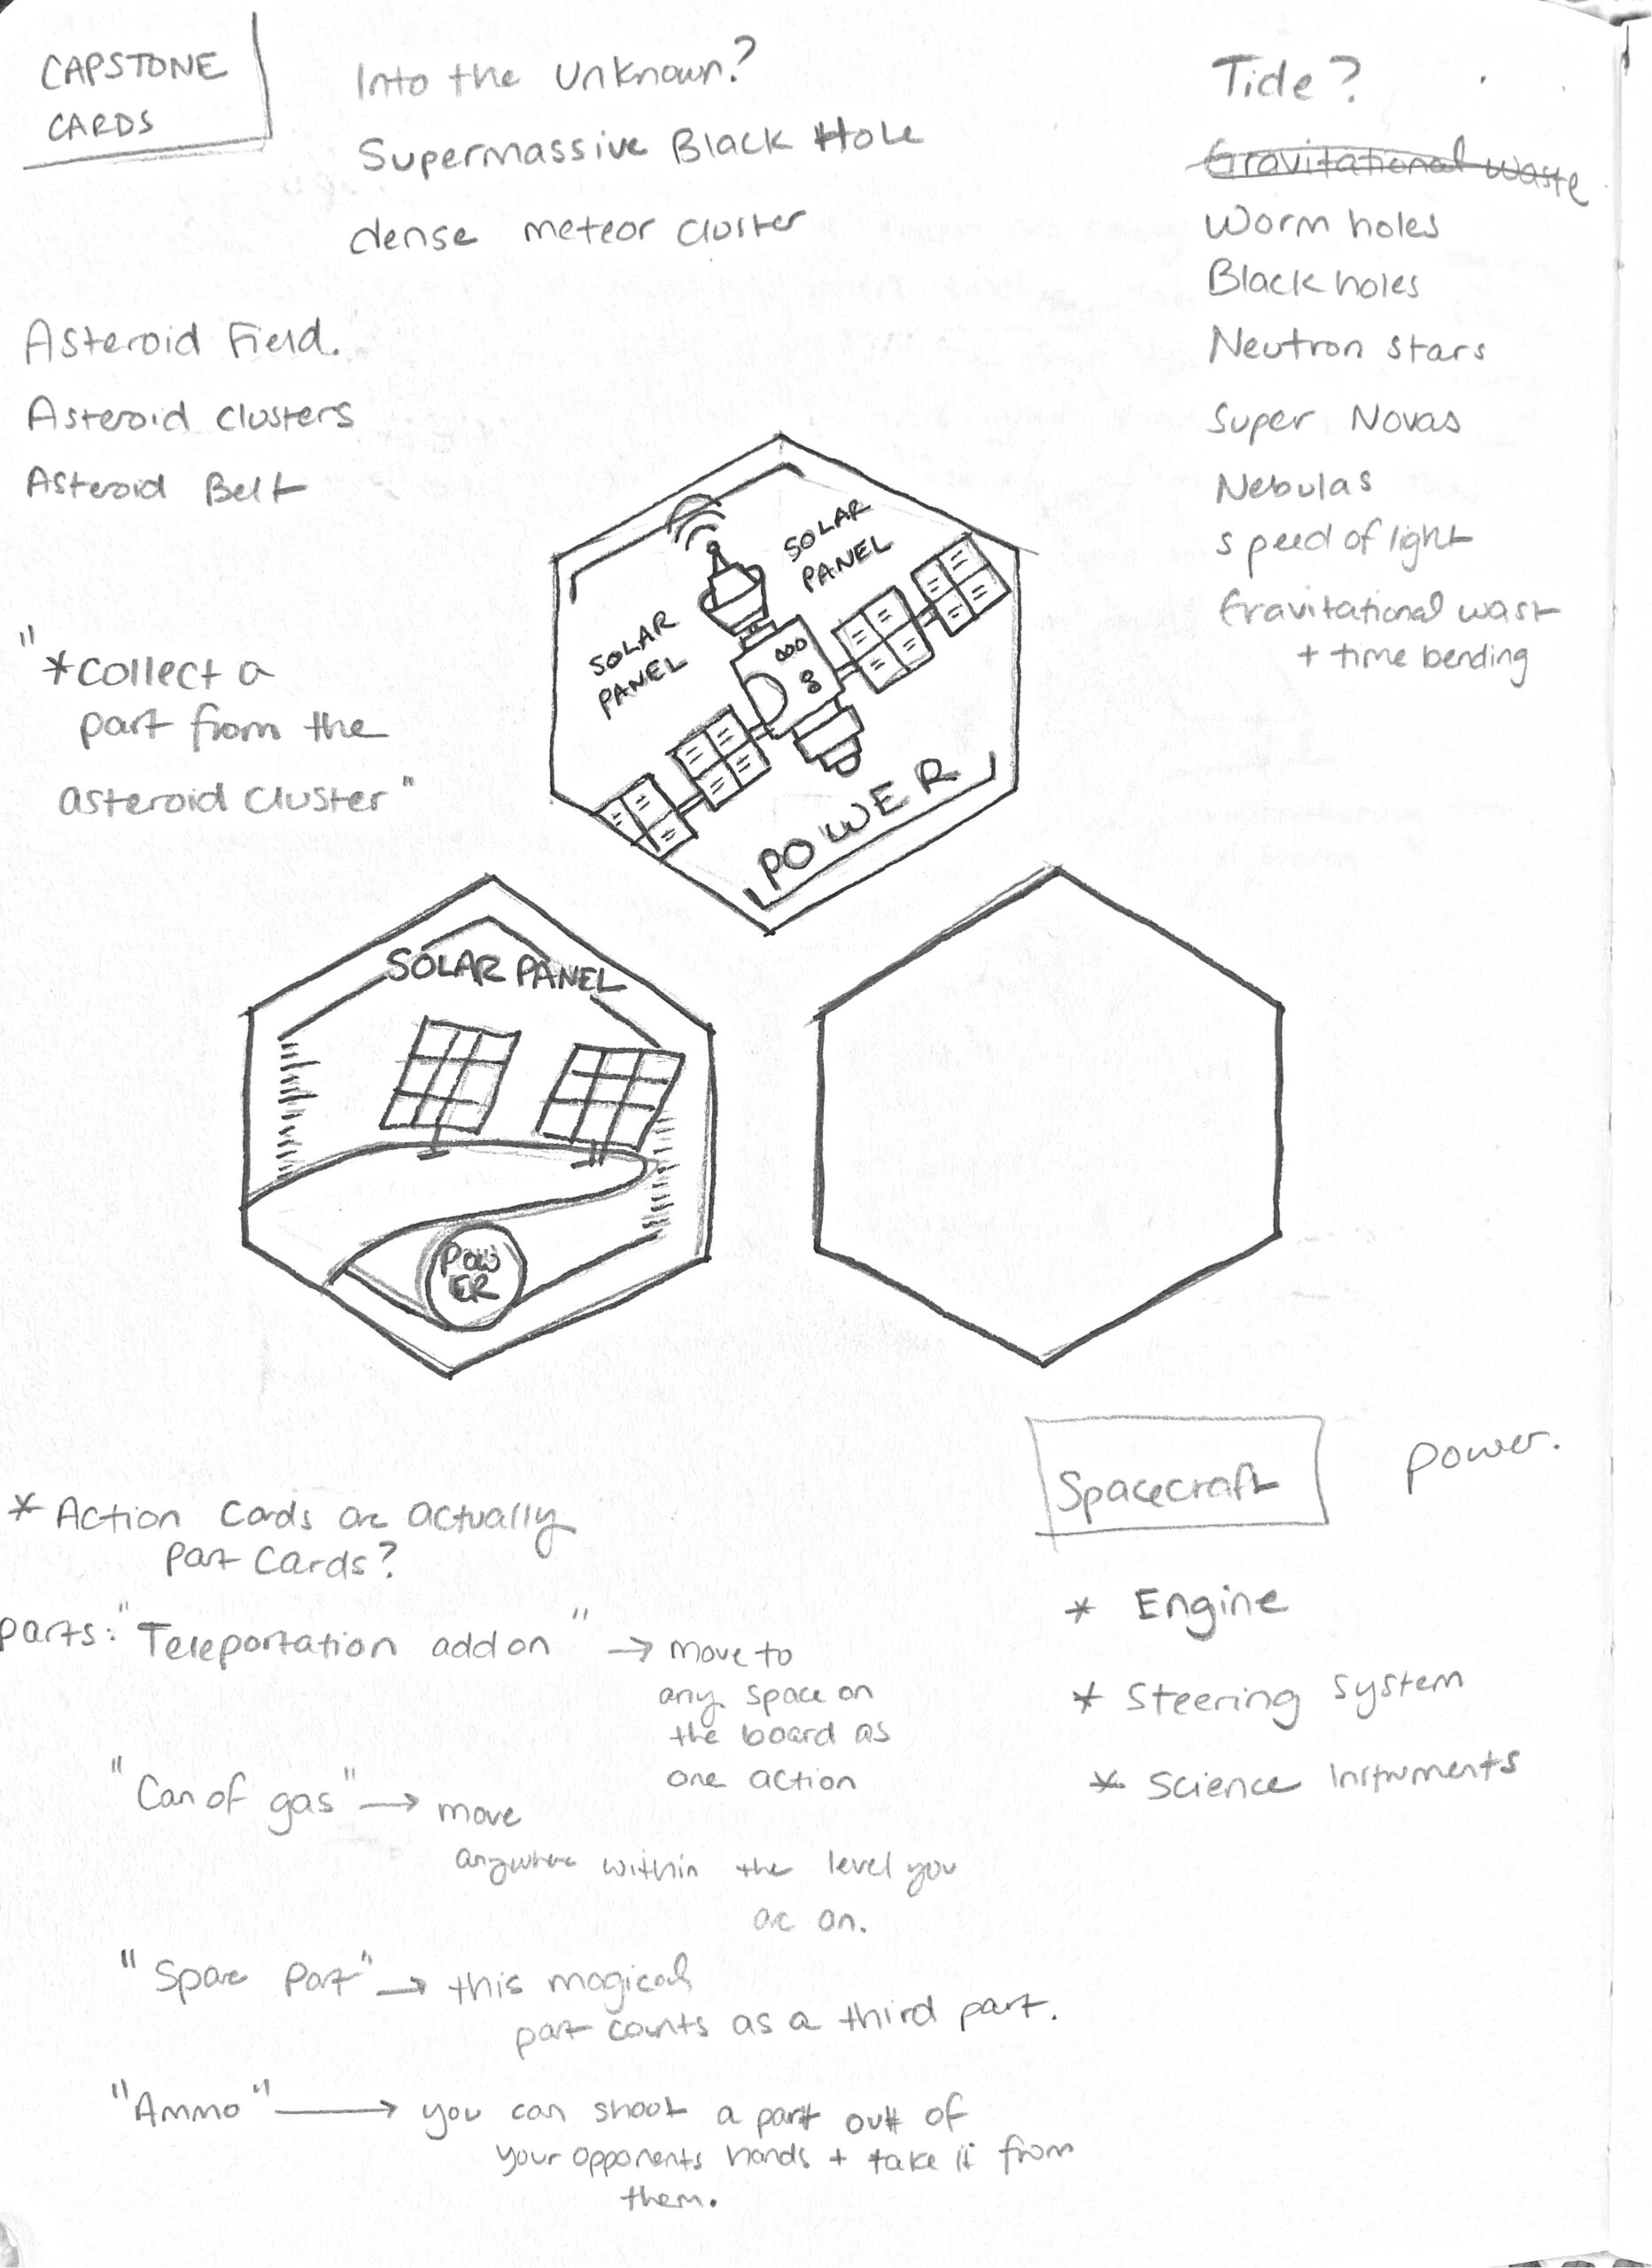 CAPSTONE
CARDS
Into the Unknown?
Supermassive Black Hole
dense meteor cluster
Tide?
Gravitational waste
Worm holes
Black holes
Neutron stars
Super Novas
Nebulas
speed of light
Gravitational wast
+ time bending
Asteroid Field.
Asteroid clusters
Asteroid Belt
"
*collect a
part from the
asteroid cluster"
SOLAR
PANEL
SOLAR
PANEL
POWER
SOLAR PANEL
POW
ER
Spacecraft
power.
* Engine
* Steering system
* Science Instruments
* Action Cards are actually
Part Cards?
parts: "Teleportation add on" → move to
any space on
the board as
one action
"Can of gas" → move
anywhere within the level you
are on.
"Spare Part" → this magical
part counts as a third part.
"Ammo" → you can shoot a part out of
your opponents hands + take it from
them.